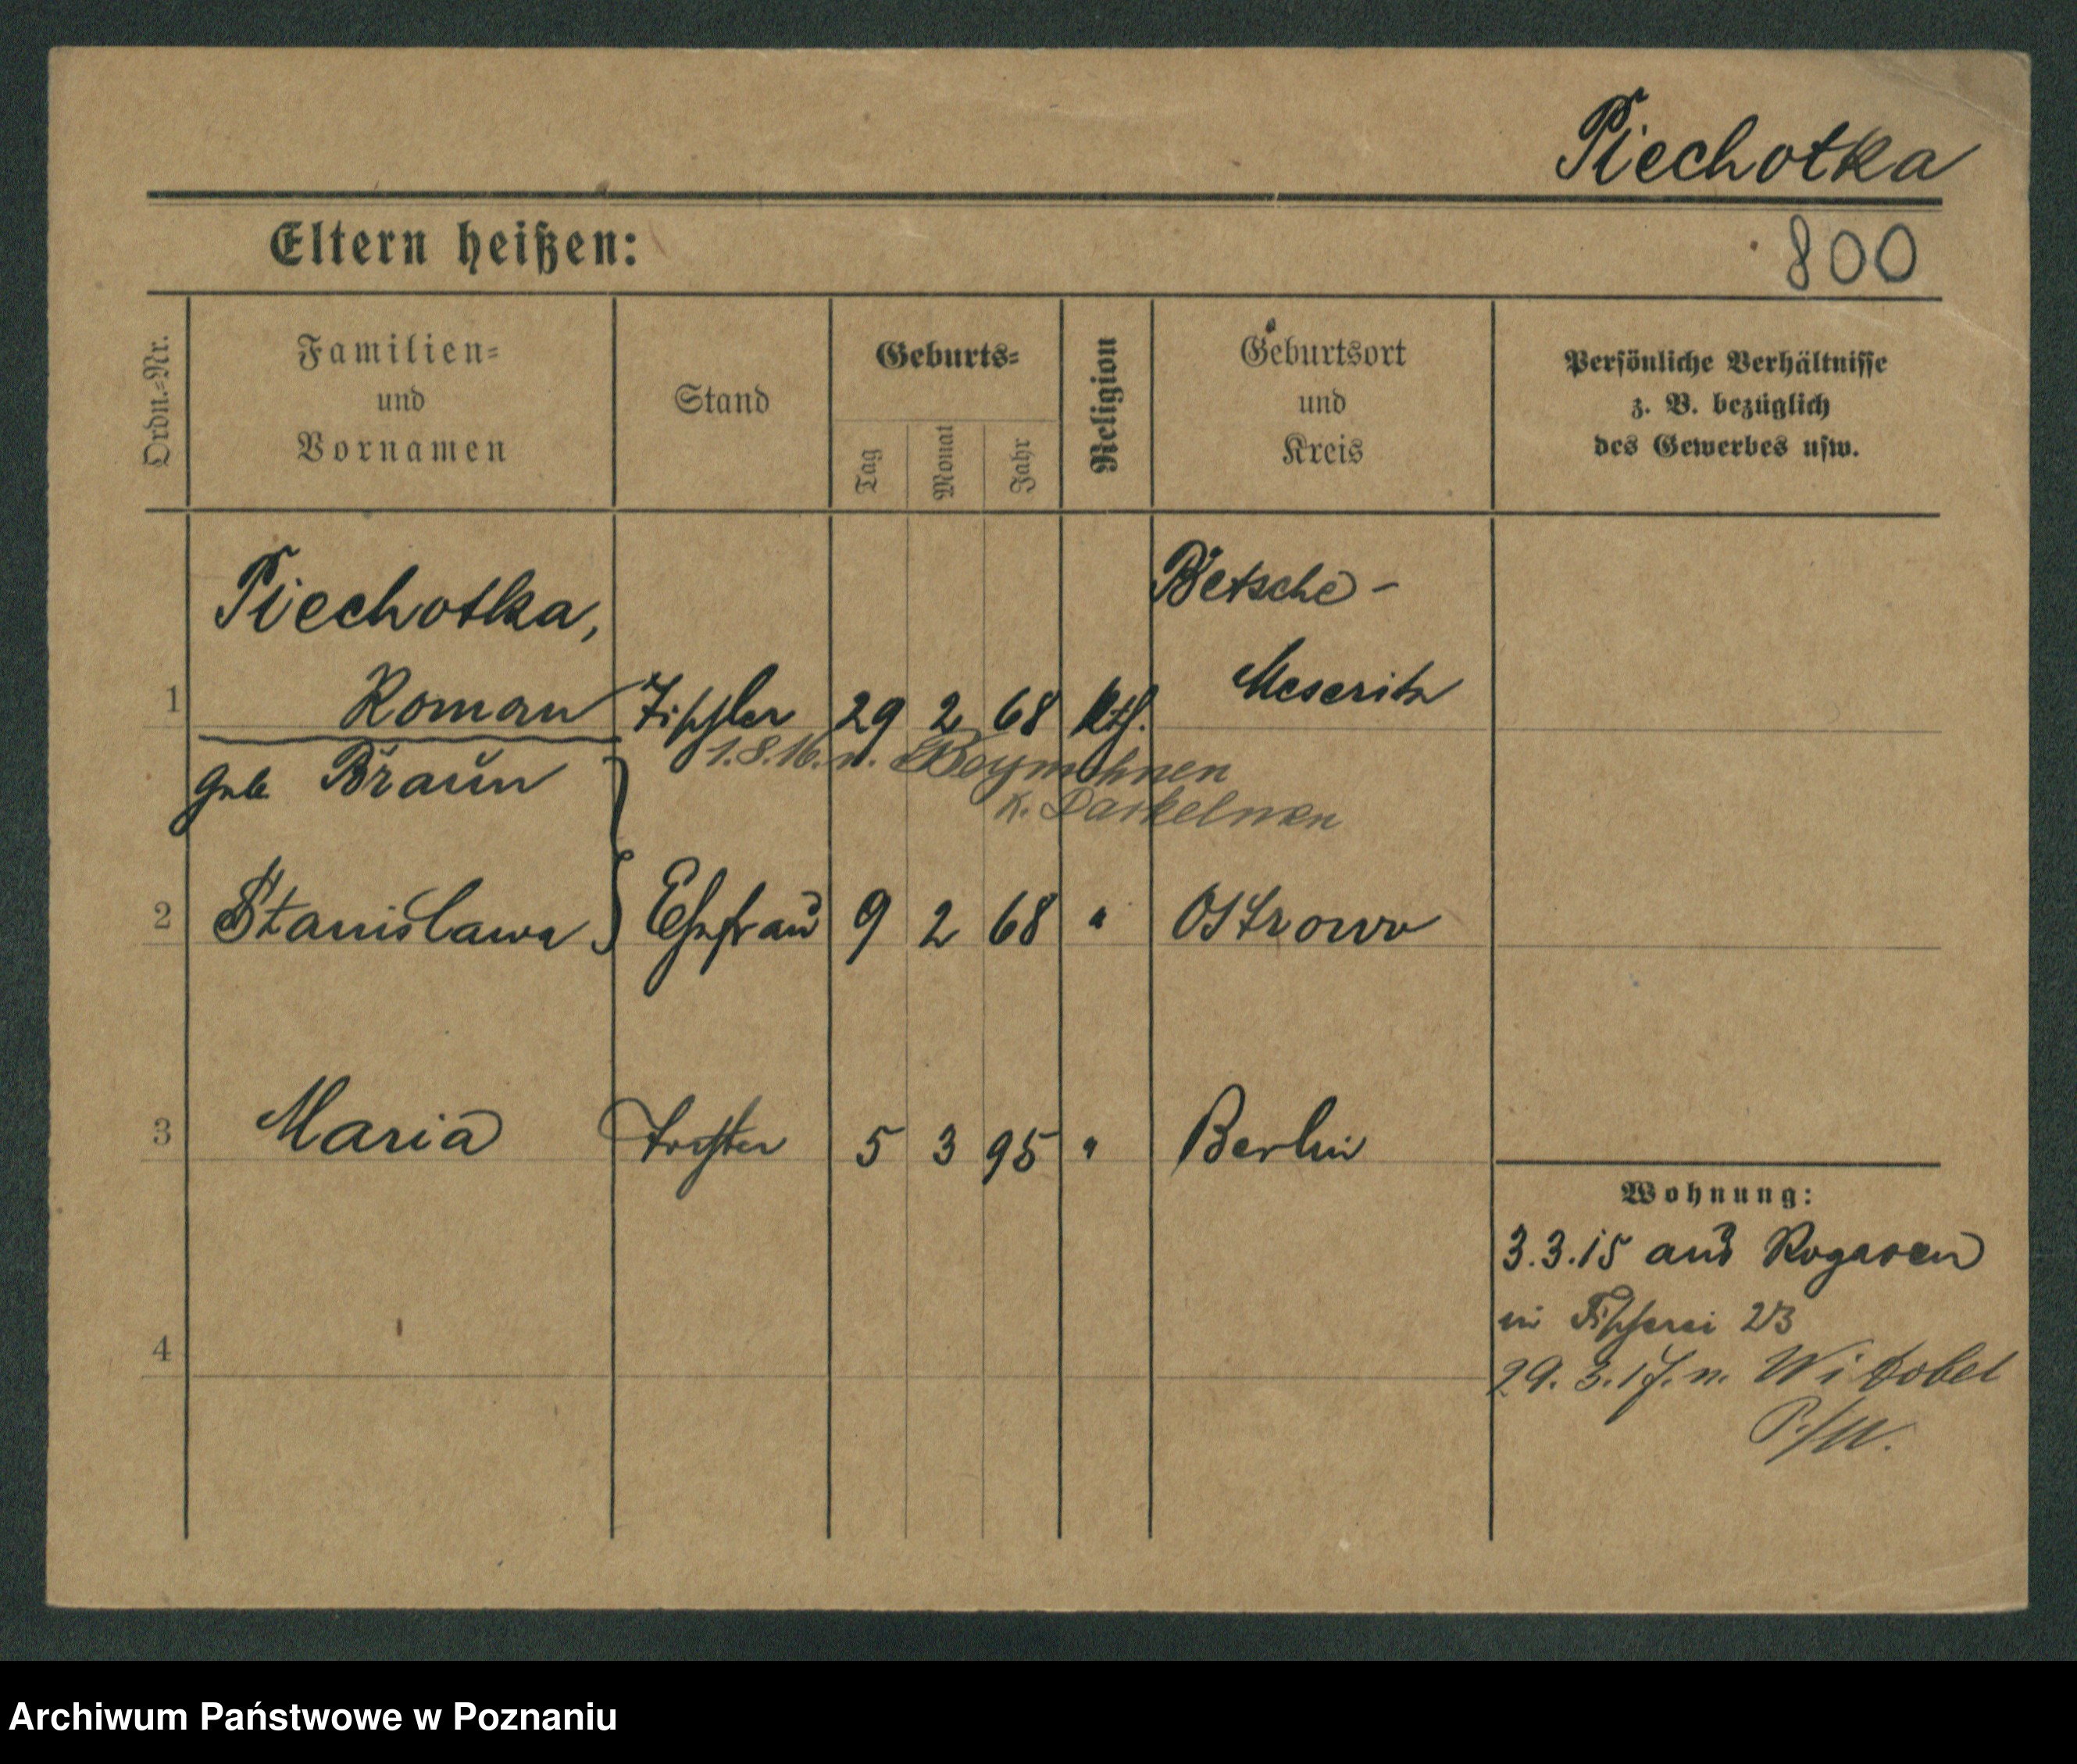 Piechotka
Eltern heißen:
800
Ordn.=Nr.
Familien=
und
Vornamen
Stand
Geburts=
Tag
Monat
Jahr
Religion
Geburtsort
und
Kreis
Persönliche Verhältnisse
z. B. bezüglich
des Gewerbes usw.
Piechotka,
Betsche -
Meseritz
1 Roman Tischler 29 2 68 kth.
1.8.16. n.
K. Darkehmen
geb Braun
2 Stanislawa Ehefrau 9 2 68 " Ostrowo
3 Maria Tochter 5 3 95 " Berlin
Wohnung:
3.3.15 aus Rogasen
in Fischerei 23
4
29. 3. 17. n.
P./W.
Archiwum Państwowe w Poznaniu